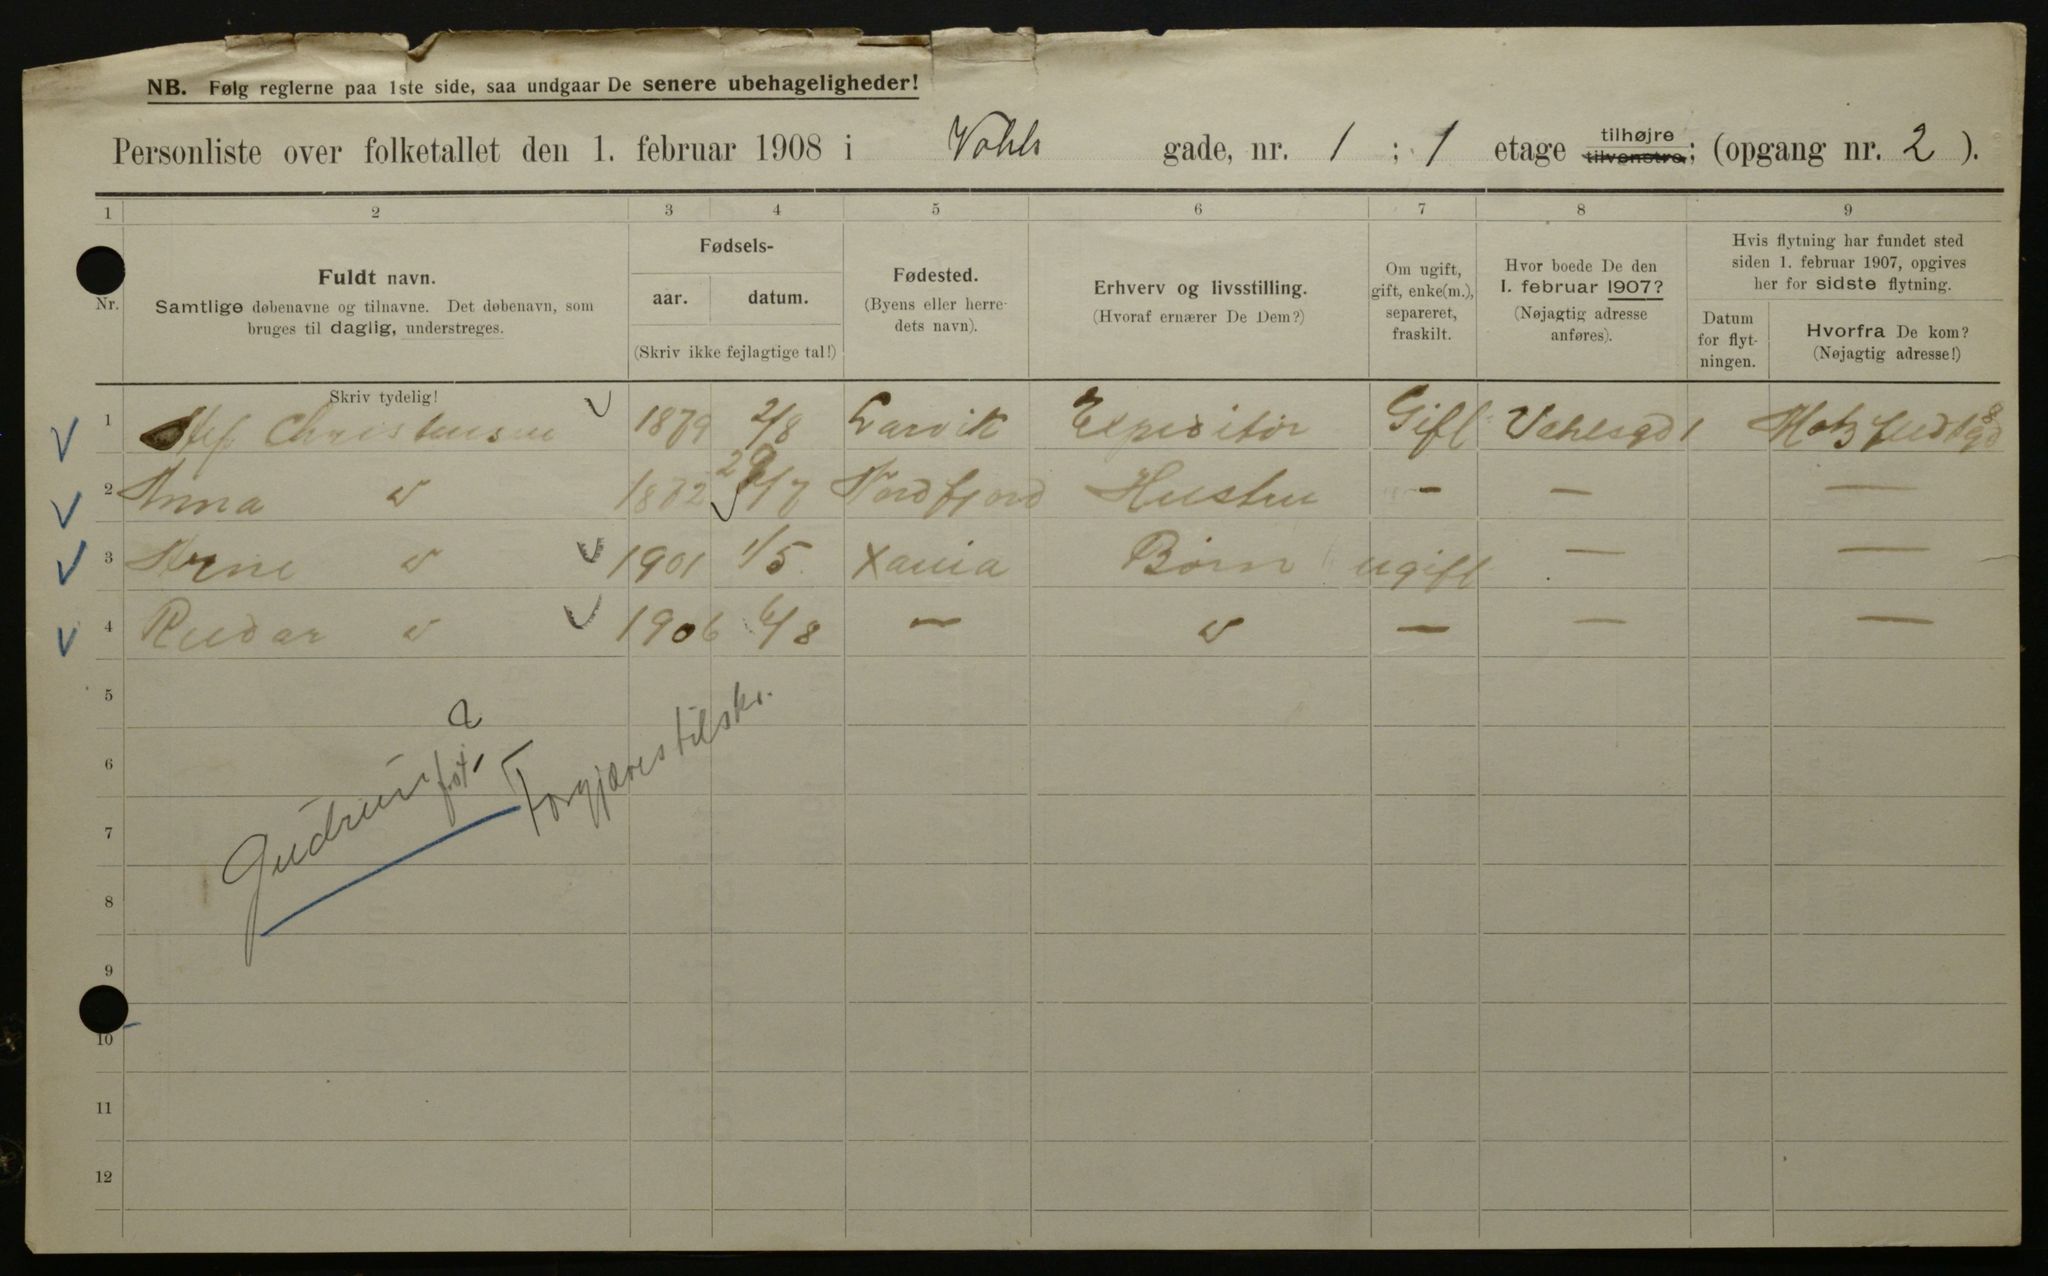 NB. Følg reglerne paa 1ste side, saa undgaar De senere ubehageligheder!
Personliste over folketallet den 1. februar 1908 i Vahls gade, nr. 1 ; 1 etage tilhøjre tilvenstre; (opgang nr. 2 ).
1 2 3 4 5 6 7 8 9
Nr.
Fuldt navn.
Samtlige døbenavne og tilnavne. Det døbenavn, som
bruges til daglig, understreges.
Fødsels-
aar. datum.
(Skriv ikke fejlagtige tal!)
Fødested.
(Byens eller herre-
dets navn).
Erhverv og livsstilling.
(Hvoraf ernærer De Dem?)
Om ugift,
gift, enke(m.),
separeret,
fraskilt.
Hvor boede De den
1. februar 1907?
(Nøjagtig adresse
anføres).
Hvis flytning har fundet sted
siden 1. februar 1907, opgives
her for sidste flytning.
Datum
for flyt-
ningen.
Hvorfra De kom?
(Nøjagtig adresse!)
Skriv tydelig!
1 Christensen 1879 2/8 Larvik Expeditør Gift Vahlsgd 1
2 Anna " 1872 29/7 Nordfjord Hustru — — —
3 Arne " 1901 1/5 Xania Børn ugift — —
4 Reidar " 1906 6/8 — " — — —
5
6
7
8
9
10
11
12
Gudrun
?